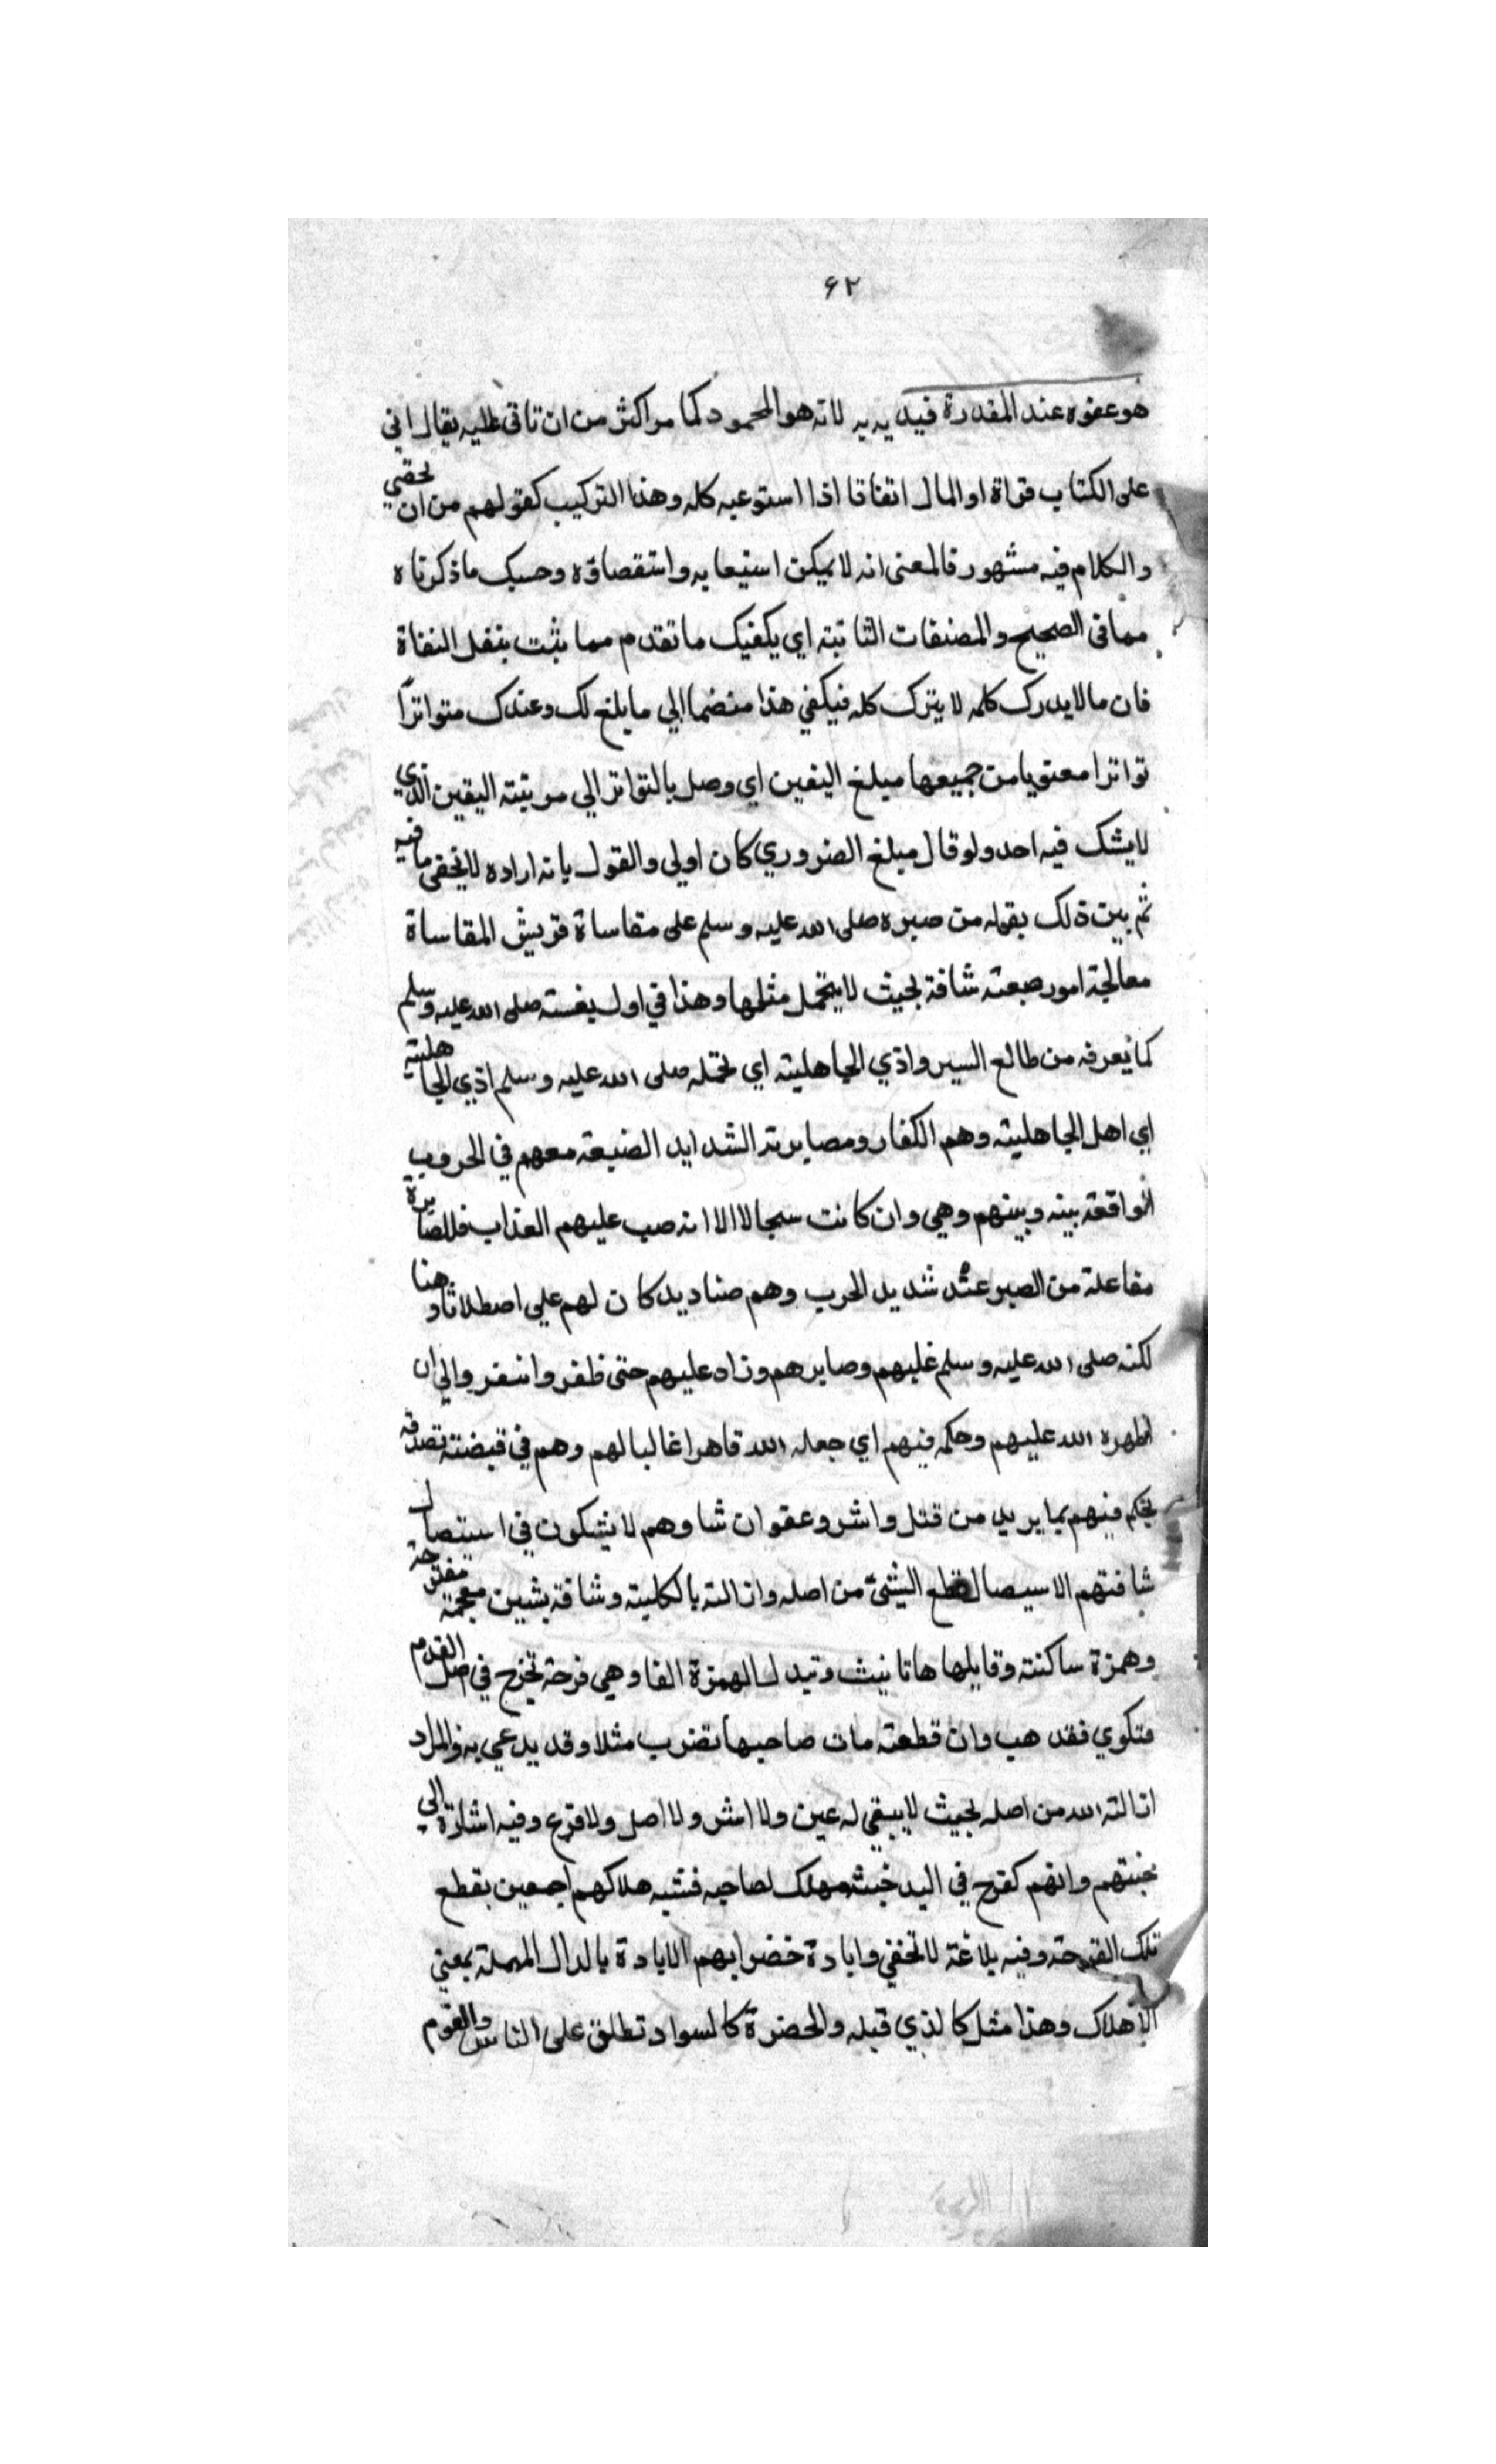 ۶۲
هو عفوه عند المقدرة فيد يه به لانه هو المحمود كما مر اكثر من ان تاتى عليه يقال اتى
على الكتاب قراة او المال اتفاقا اذا استوعبه كله وهذا التركيب كقولهم من ان يحصى
والكلام فيه مشهور فالمعنى انه لا يمكن استيعابه واستقصاؤه وحسبك ما ذكرناه
مما فى الصحيح والمصنفات الثابتة اي يكفيك ما تقدم مما يثبت بنقل الثقاة
فان ما لا يدرك كله لا يترك كله فيكفي هذا منضما الي ما بلغ لك وعندك متواترًا
تواترا معنويا من جميعها مبلغ اليقين اي وصل بالتواتر الي مرتبة اليقين الذي
لا يشك فيه احد ولو قال مبلغ الضروري كان اولى والقول بانه اراده لا يخفى ما فيه
ثم بين ذلك بقوله من صبره صلى الله عليه وسلم على مقاساة قريش المقاساة
معالجة امور صعبة شاقة بحيث لا يتحمل مثلها وهذا في اول بعثته صلى الله عليه وسلم
كما يعرفه من طالع السير واذي الجاهلية اي تحمله صلى الله عليه وسلم اذي الجاهلية
اي اهل الجاهلية وهم الكفار ومصابرته الشدايد الصعبة معهم في الحروب
الواقعة بينه وبينهم وهي وان كانت سجالا الا انه صب عليهم العذاب فالمصابرة
مفاعلة من الصبر عند شديد الحرب وهم صناديد كان لهم علي اصطلا نا هنا
لكنه صلى الله عليه وسلم غلبهم وصابرهم وزاد عليهم حتى ظفر والي ان
اظهره الله عليهم وحكمه فيهم اي جعله الله قاهرا غالبا لهم وهم في قبضة تصرفه
يحكم فيهم بما يريد من قتل واسر وعفو ان شا وهم لا يشكون في استيصال
شافتهم الاسيصال قطع الشئ من اصله وازالته بالكلية وشافة بشين معجمة مفتوحة
وهمزة ساكنة وقابلها ها تانيث وتبدل الهمزة الفا وهي قرحة تخرج في اصل القدم
فتكوي فقد هب وان قطعت مات صاحبها تضرب مثلا وقد يدعي به والمراد
ازالته الله من اصله بحيث لا يبقي له عين ولا اثر ولا اصل ولا فرع وفيه اشارة الي
خبثهم وانهم كقرح في اليد خبث مهلك لصاحبه فشبه هلاكهم اجمعين بقطع
تلك القرحة وفيه بلاغة لا تخفي وابادة خضرايهم الابادة بالدال المهملة بمعني
الاهلاك وهذا مثل كالذي قبله والخضرة كالسواد تطلق على الناس والقوم